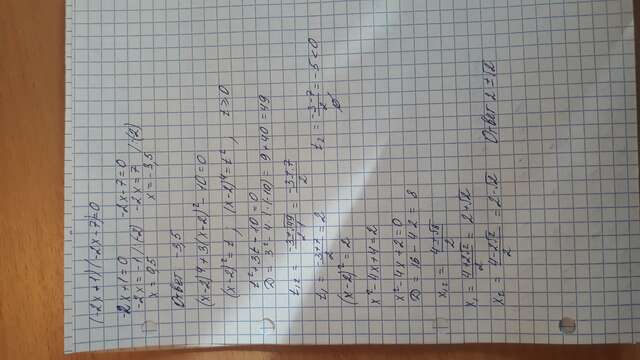 (-2x+1)(-2x-7)=0
-2x+1=0 -2x-7=0
-2x=-1 /:(-2) -2x=7 /:(-2)
x=0,5 x=-3,5
Ответ -3,5
(x-2)⁴+3(x-2)²-10=0
(x-2)²=t, (x-2)⁴=t², t≥0
t²+3t-10=0
D=3²-4·1·(-10)=9+40=49
t₁,₂=(-3±√49)/2·1=(-3±7)/2
t₁=(-3+7)/2=2 t₂=(-3-7)/2=-5<0
(x-2)²=2
x²-4x+4=2
x²-4x+2=0
D=16-4·2=8
x₁,₂=(4±√8)/2
x₁=(4+2√2)/2=2+√2
x₂=(4-2√2)/2=2-√2 Ответ 2±√2